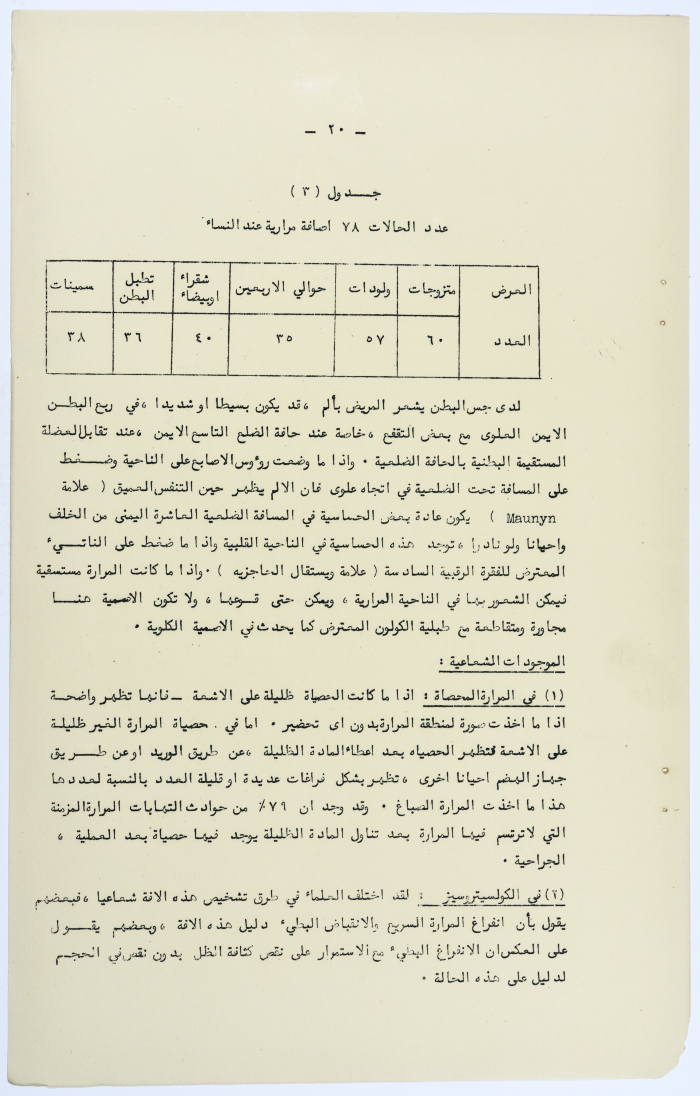 - ٢٠ -
جـــدول ( ٣ )
عدد الحالات ٧٨ اصافة مرارية عند النساء
العرض متزوجات ولودات حوالي الاربعين شقراء اوبيضاء تطبل البطن سمينات
العدد ٦٠ ٥٧ ٣٥ ٤٠ ٣٦ ٣٨
لدى جس البطن يشعر المريض بألم ، قد يكون بسيطا او شديدا ، في ربع البطـن
الايمن العلوى مع بعض التقفع ، خاصة عند حافة الضلع التاسع الايمن ، عند تقابل العضلة
المستقيمة البطنية بالحافة الضلعية ٠ واذا ما وضعت رؤوس الاصابع على الناحية وضـــغط
على المسافة تحت الضلعية في اتجاه علوى فان الالم يظهر حين التنفس العميق ( علامة
Maunyn ) يكون عادة بعض الحساسية في المسافة الضلعية العاشرة اليمنى من الخلف
واحيانا ولو نادرا ، توجد هذه الحساسية في الناحية القلبية واذا ما ضغط على الناتـــىء
المعترض للفقرة الرقبية السادسة ( علامة ويستقال الحاجزيه ) ٠ واذا ما كانت المرارة مستسقية
فيمكن الشعور بها في الناحية المرارية ، ويمكن حتى قـــوعها ، ولا تكون الاصمية هنـــا
مجاورة ومتقاطعة مع طبلية الكولون المعترض كما يحدث في الاصمية الكلوية ٠
الموجودات الشعاعية :
(١) في المرارة المحصاة : اذا ما كانت الحصياة ظليلة على الاشعة – فانها تظهر واضحة
اذا ما اخذت صورة لمنطقة المرارة بدون اى تحضير ٠ اما في حصياة المرارة الغير ظليلة
على الاشعة فتظهر الحصياه بعد اعطاء المادة الظليلة ، عن طريق الوريد او عن طـــريق
جهاز الهضم احيانا اخرى ، تظهر بشكل فراغات عديدة او قليلة العدد بالنسبة لعددها
هذا ما اخذت المرارة الصباغ ٠ وقد وجد ان ٧٩٪ من حوادث التهابات المرارة المزمنة
التي لاترتسم فيها المرارة بعد تناول المادة الظليلة يوجد فيها حصياة بعد العملية ،
الجراحية ٠
(٢) في الكولسيتروسيز : لقد اختلف العلماء في طرق تشخيص هذه الافة شعاعيا ، فبعضهم
يقول بأن انفراغ المرارة السريع والانقباض البطيء دليل هذه الافة ، وبعضهم يقـــول
على العكس ان الانفراغ البطيء مع الاستمرار على نقص كثافة الظل بدون نقص في الحجـم
لدليل على هذه الحالة ٠